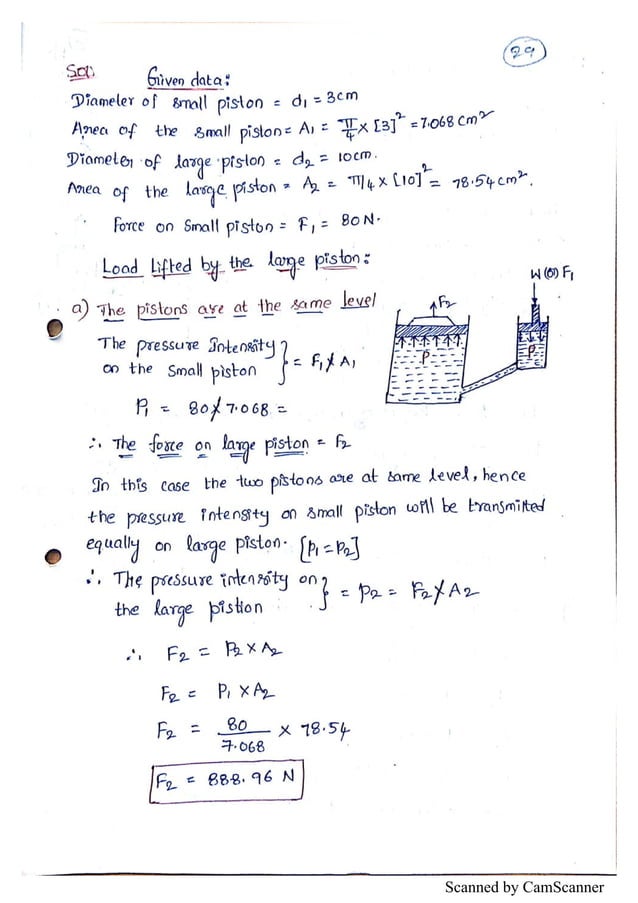 29
Sol:
Given data:
Diameter of small piston = d₁ = 3cm
Area of the small piston = A₁ = π/4 × [3]² = 7.068 cm²
Diameter of large piston = d₂ = 10cm.
Area of the large piston = A₂ = π/4 × [10]² = 78.54 cm².
Force on small piston = F₁ = 80N.
Load Lifted by the large piston:
a) The pistons are at the same level
The pressure Intensity
on the small piston } = F₁/A₁
P₁ = 80/7.068 =
∴ The force on large piston = F₂
In this case the two pistons are at same level, hence
the pressure intensity on small piston will be transmitted
equally on large piston. [P₁ = P₂]
∴ The pressure intensity on
the large pistion } = P₂ = F₂/A₂
∴ F₂ = P₂ × A₂
F₂ = P₁ × A₂
F₂ = 80/7.068 × 78.54
F₂ = 888.96 N
F₂
W (or) F₁
P
P
Scanned by CamScanner